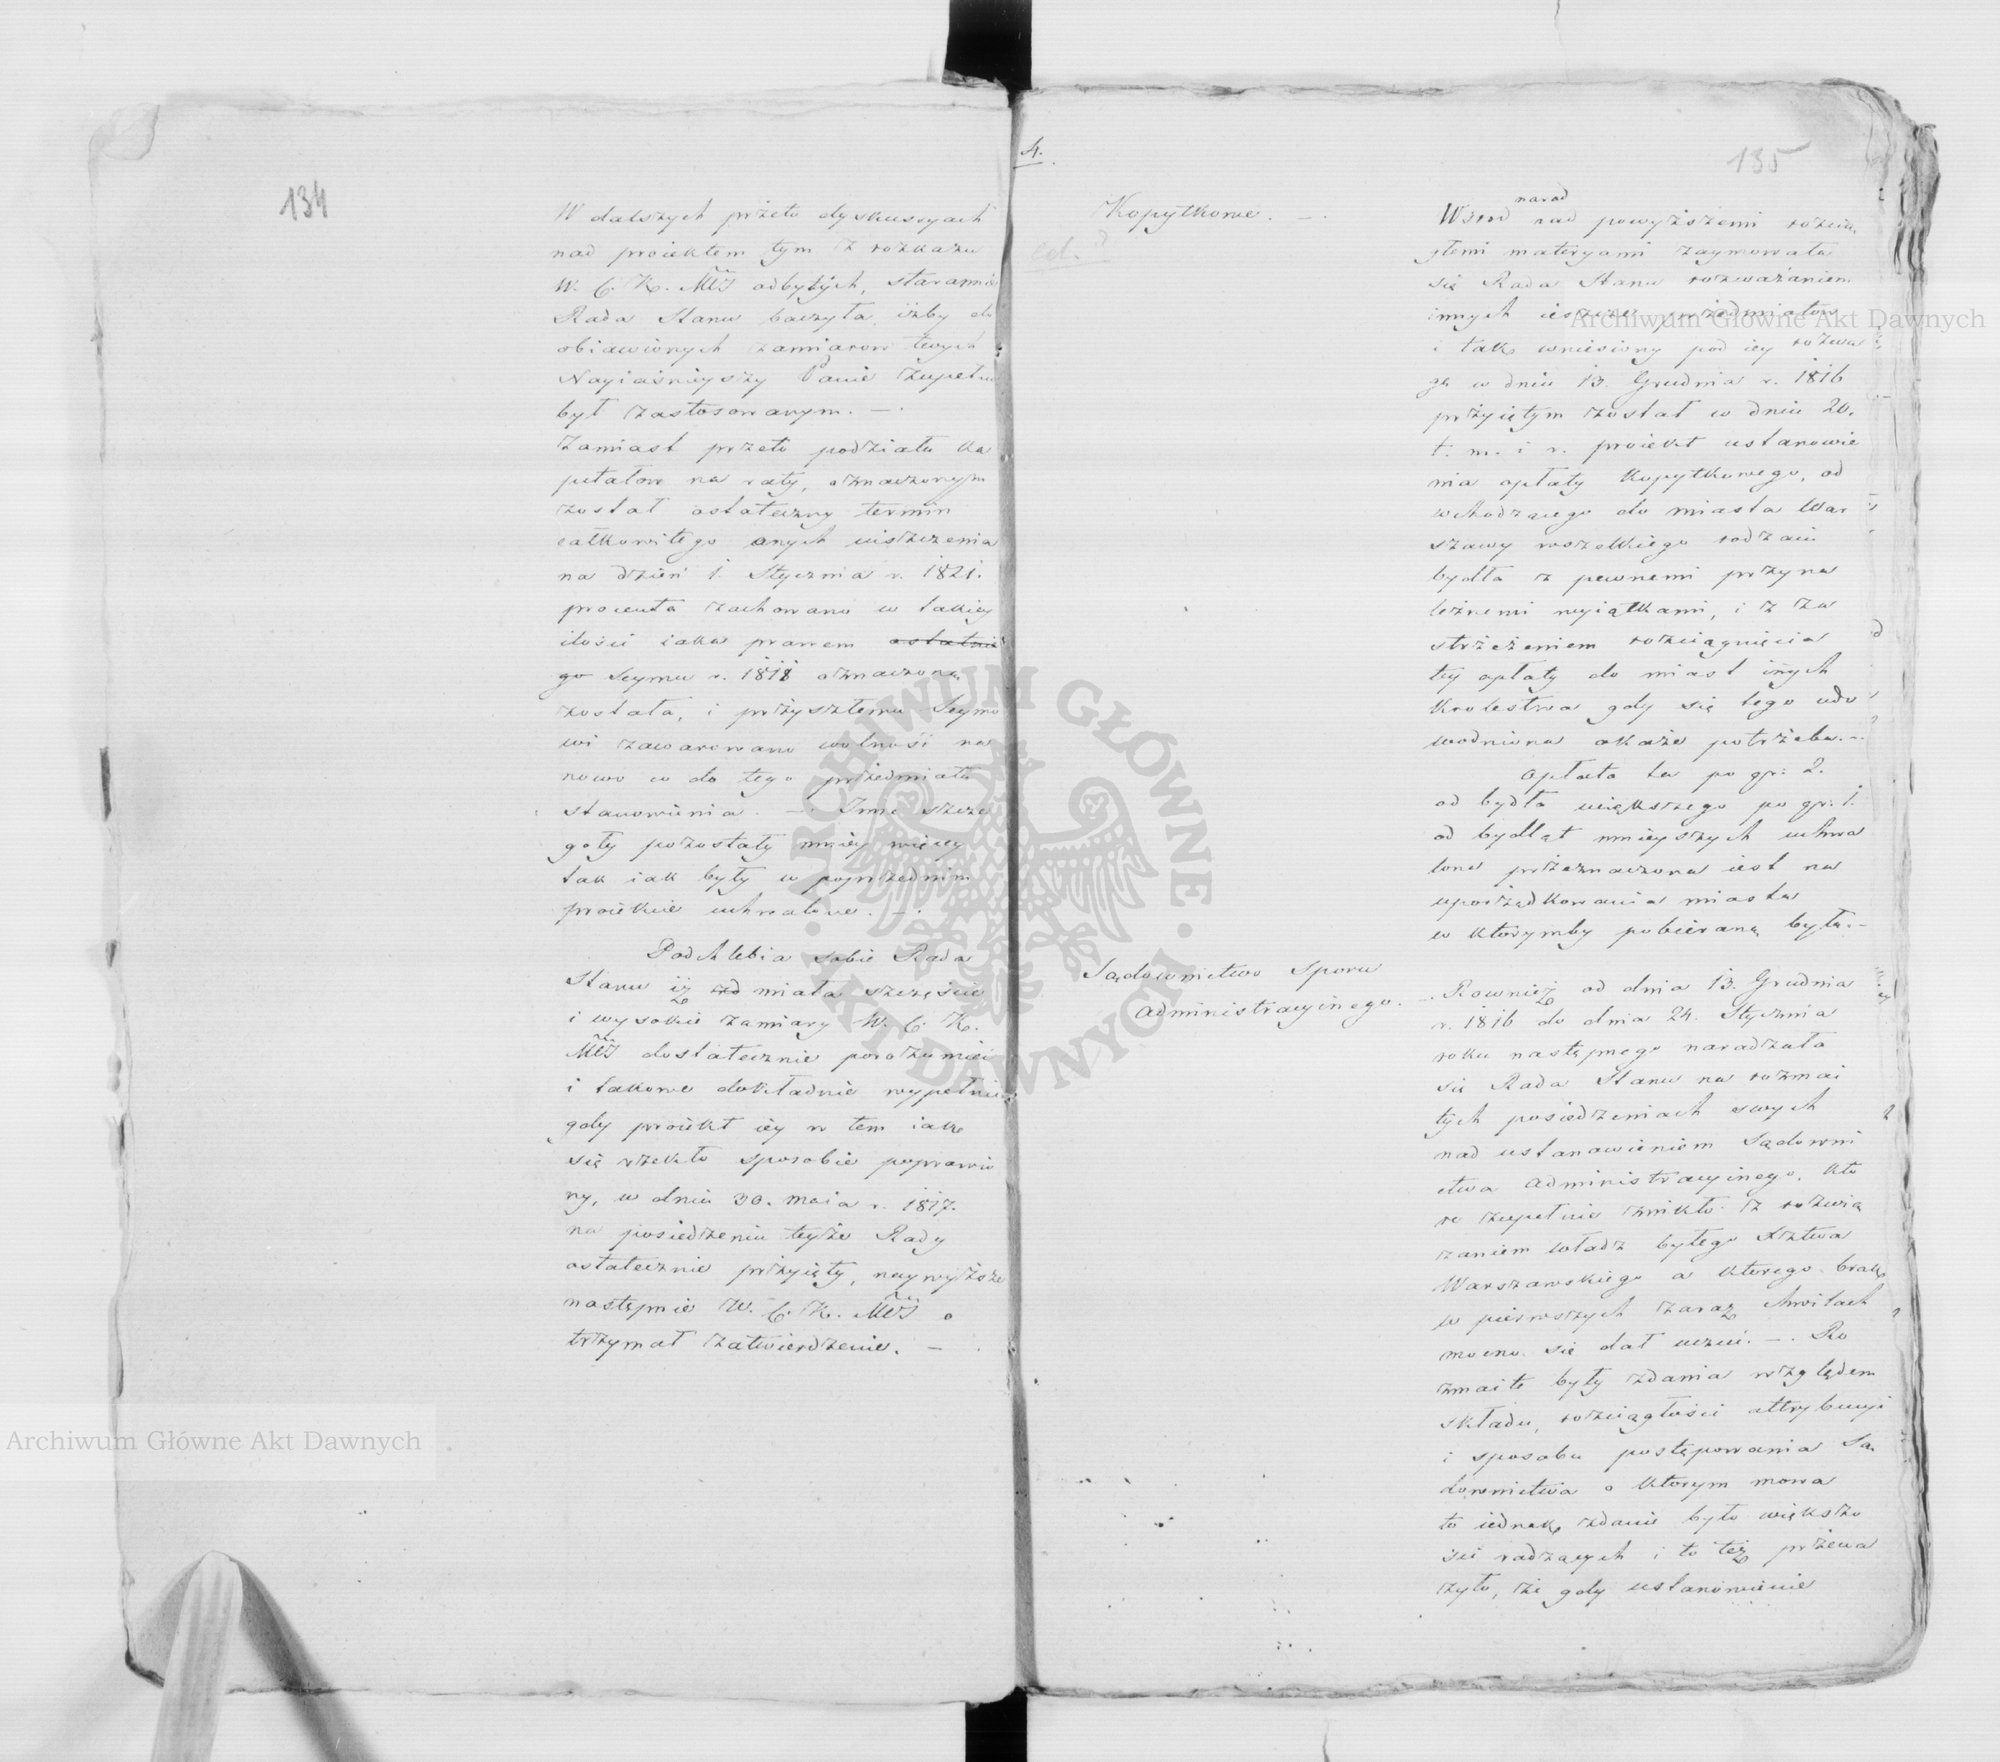 134
W dalszych przeto dyskussyach
nad proiektem tym z rozkazu
W. C. K. Mci odbytych, starannie
Rada Stanu baczyła, iżby do
obiawionych zamiarow twych
Nayiaśnieyszy Panie zupełnie
był zastosowanym. —.
Zamiast przeto podziału ka
pitałow na raty, oznaczonym
został ostateczny termin
całkowitego onych uiszczenia
na dzień 1. Stycznia r. 1821.
procenta zachowano w takiey
ilości iaka prawem ostatnie
go Seymu r. 1811 oznaczoną
została, i przyszłemu Seymo
wi zawarowano wolność na
nowo w do tego przedmiotu
stanowienia. —. Inne szcze
goły pozostały mniey więcey
tak iak były w poprzednim
proiekcie uchwalone. —.
Podchlebia sobie Rada
Stanu iż miała szczęście
i wysokie zamiary W. C. K.
Mci dostatecznie porozumieć
i takowe dokładnie wypełnić
gdy proiekt iey w tem iak
się rzekło sposobie poprawio
ny, w dniu 30. Maia r. 1817.
na posiedzeniu teyże Rady
ostatecznie przyięty, naywyższe
następnie W. C. K. Mci o
trzymał zatwierdzenie. —.
4.
135
Kopytkowe. —.
narad
Wśrod nad powyższemi rozcią
głemi materyami zaymowała
się Rada Stanu rozważaniem
innych ieszcze przedmiotow
i tak wniesiony pod iey rozwa
gę w dniu 13. Grudnia r. 1816
przyiętym został w dniu 20.
t. m. i r. proiekt ustanowie
nia opłaty Kopytkowego, od
wchodzącego do miasta War
szawy wszelkiego rodzaiu
bydła z pewnemi przyna
leżnemi wyiątkami, i z za
strzeżeniem rozciągnięcia
tey opłaty do miast inych
Krolestwa gdy się tego udo
wodniona okaże potrzeba. —.
Opłata ta po gr: 2.
od bydła większego po gr: 1.
od bydląt mnieyszych uchwa
lona przeznaczona iest na
uporządkowania miasta
w ktorymby pobieraną była. —
Sądownictwo Sporu
Administracyinego. —.
Rownież od dnia 13. Grudnia
r. 1816 do dnia 24. Stycznia
roku następnego naradzała
się Rada Stanu na rozmai
tych posiedzeniach swych
nad ustanowieniem Sądowni
ctwa Administracyinego, kto
re zupełnie znikło z rozwią
zaniem władz byłego Xztwa
Warszawskiego a ktorego brak
w pierwszych zaraz chwilach
mocno się dał uczuć. —. Ro
zmaite były zdania względem
składu, rozciągłości attrybucyi
i sposobu postępowania Są
downictwa o ktorym mowa
to iednak zdanie było większo
ści radzących i to też przewa
żyło, że gdy ustanowienie
ARCHIWUM GŁÓWNE · AKT DAWNYCH ·
Archiwum Główne Akt Dawnych
Archiwum Główne Akt Dawnych